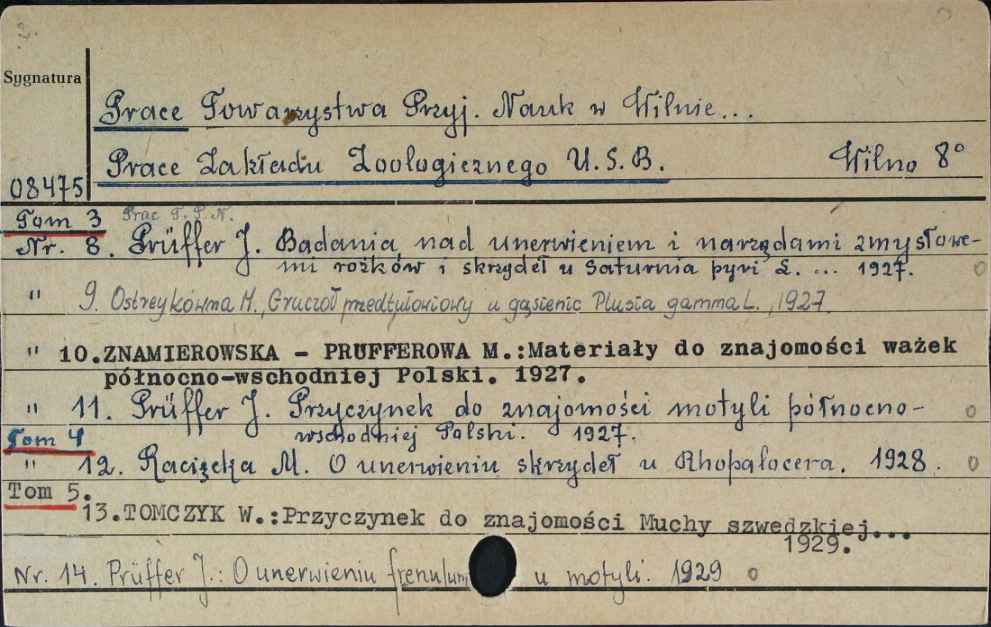 Sygnatura
Prace Towarzystwa Przyj. Nauk w Wilnie...
Prace Zakładu Zoologicznego U.S.B. Wilno 8°
08475
Tom 3 Prac T.P.N.
Nr. 8. Prüffer J. Badania nad unerwieniem i narzędami zmysłowe-
mi rożków i skrzydeł u Saturnia pyri L. ... 1927.
" 9. Ostreykówna M., Gruczoł przedtułowiowy u gąsienic Plusia gamma L., 1927.
" 10.ZNAMIEROWSKA - PRUFFEROWA M.:Materiały do znajomości ważek
północno-wschodniej Polski. 1927.
" 11. Prüffer J. Przyczynek do znajomości motyli północno-
wschodniej Polski. 1927.
Tom 4
" 12. Racięcka M. O unerwieniu skrzydeł u Rhopalocera. 1928.
Tom 5.
13.TOMCZYK W.:Przyczynek do znajomości Muchy szwedzkiej...
1929.
Nr. 14. Prüffer J.: O unerwieniu frenulum u motyli. 1929